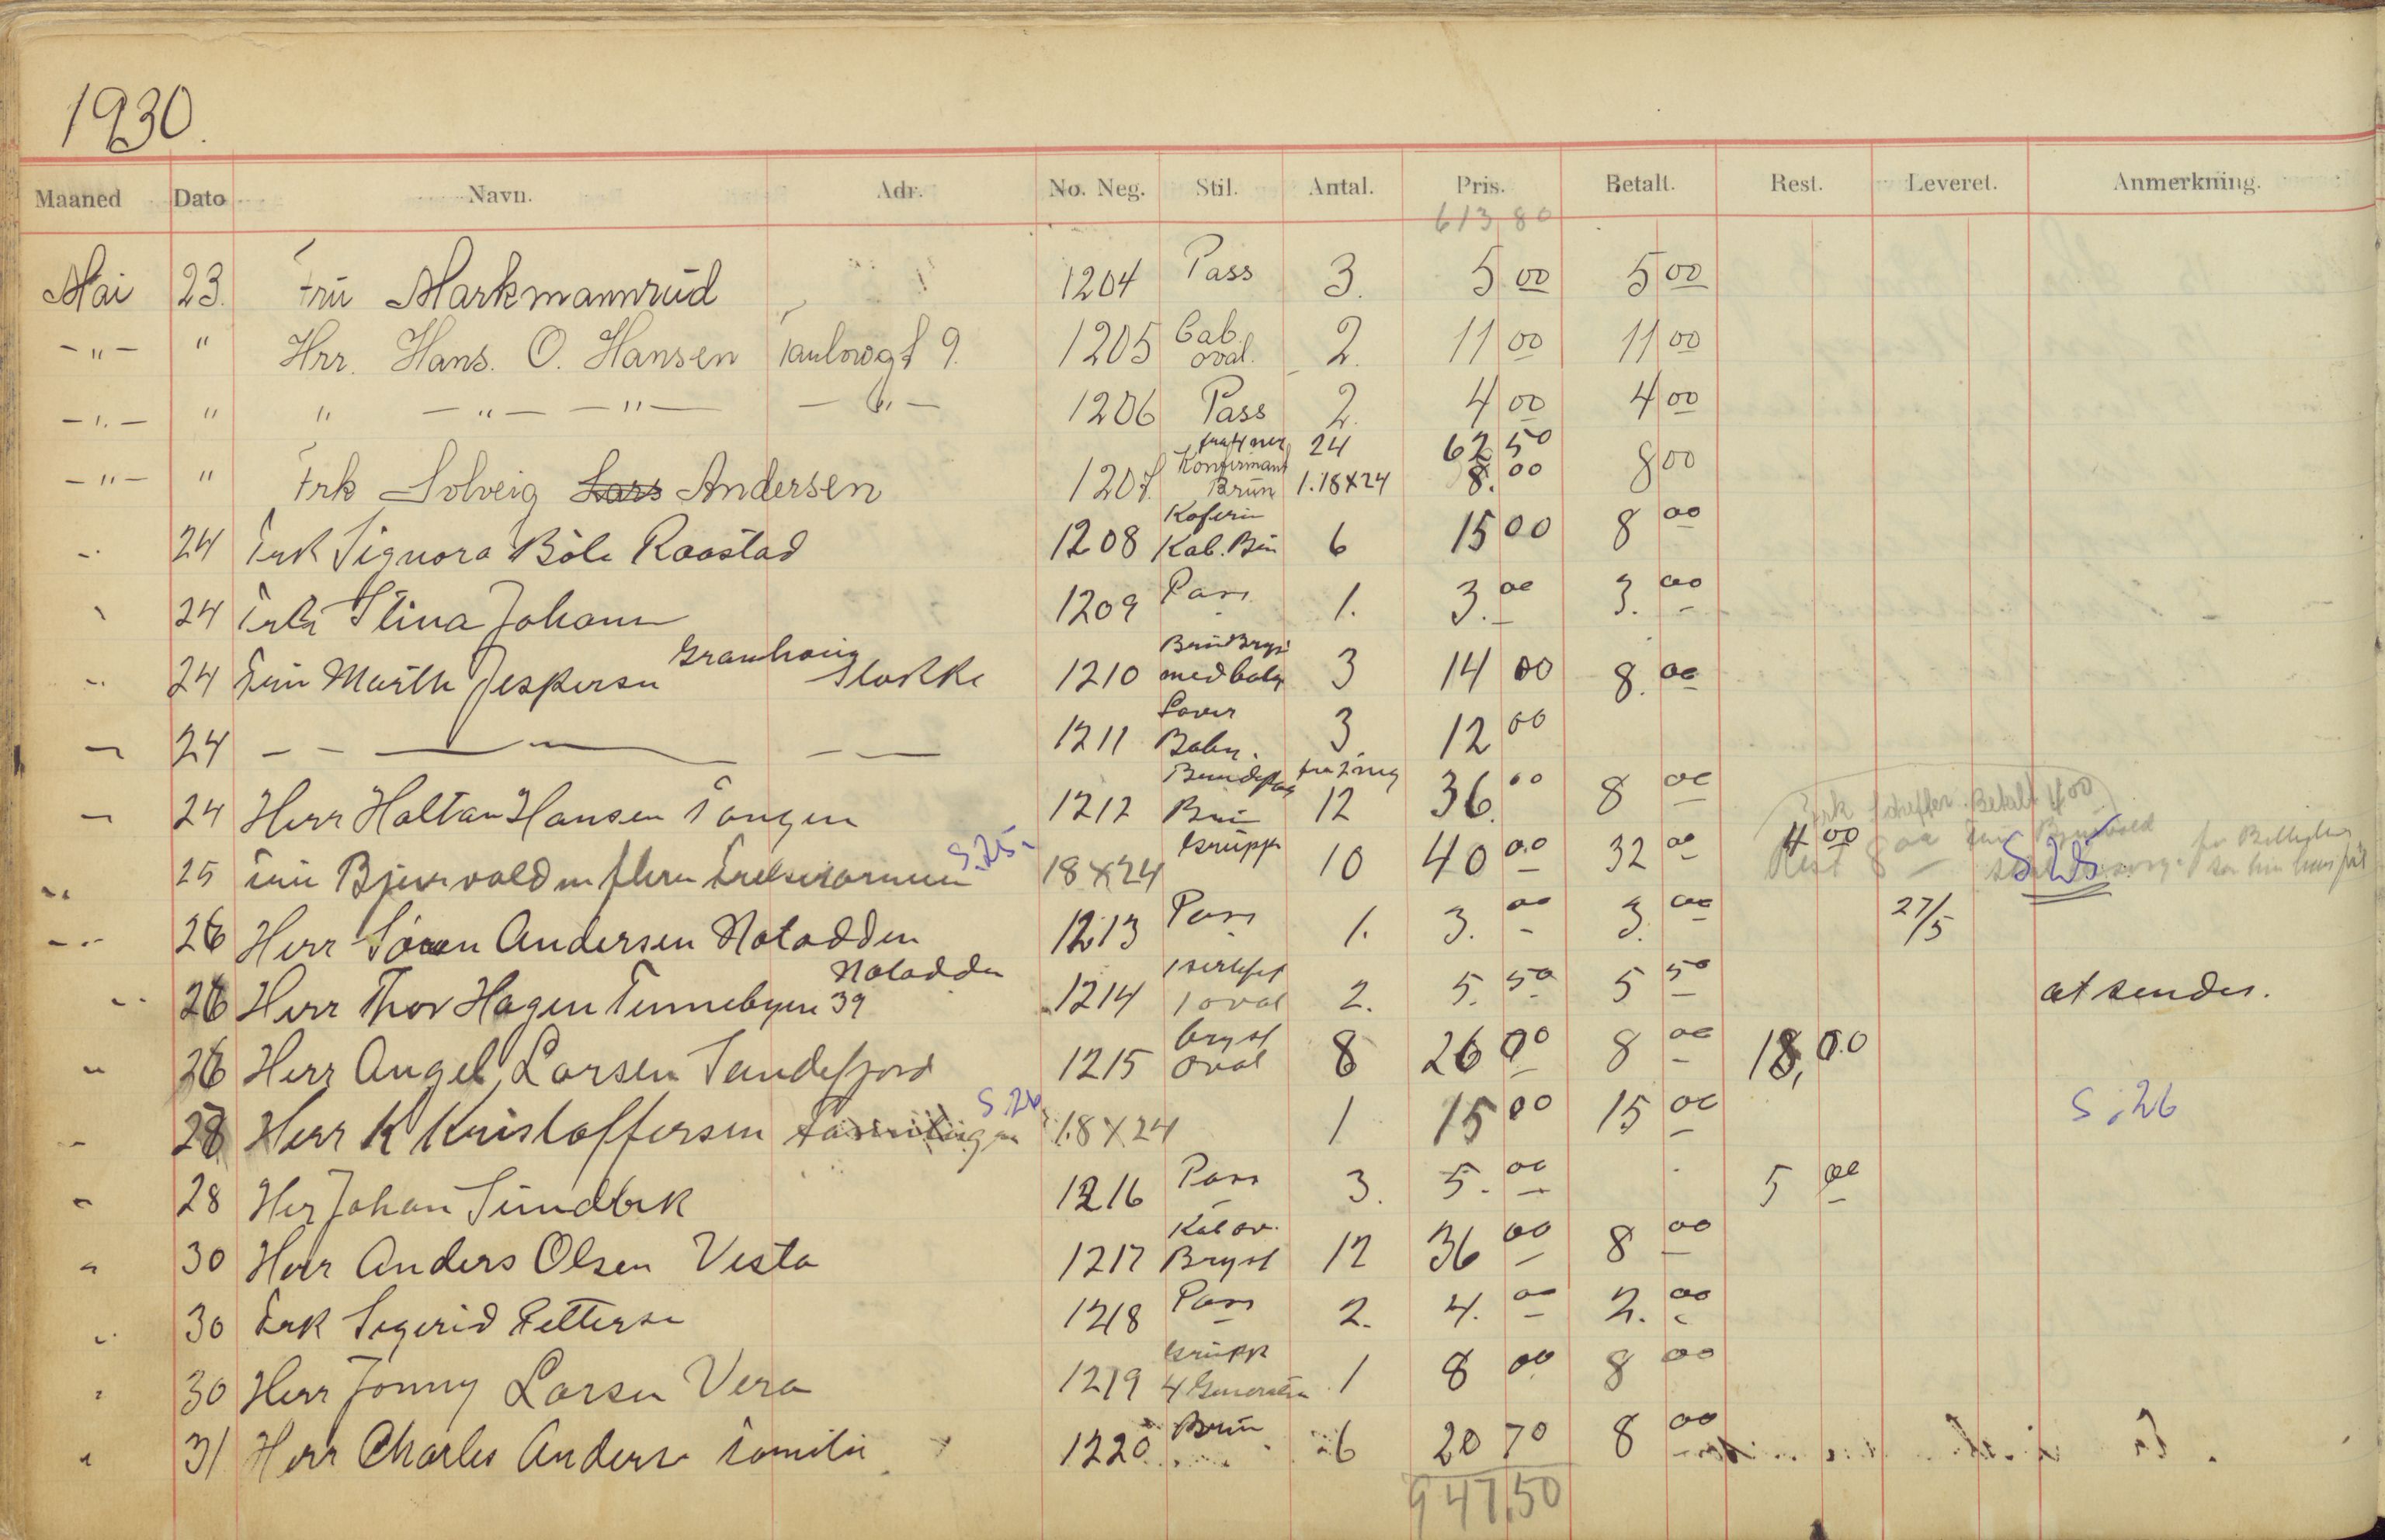 1930.
Maaned Dato Navn. Adr. No. Neg. Stil. Antal. Pris. Betalt. Rest. Leveret. Anmerkning.
613 80
Mai 23. Fru Markmannrud 1204 Pass 3. 5 00 5 00
-"- " Hrr. Hans. O. Hansen 9. 1205 Cab. oval. 2. 11 00 11 00
-"- " " -"- -"- -"- 1206 Pass 2. 4 00 4 00
24 62 50
-"- " Frk Solveig Lars Andersen 1207. Konfirmant Brun 1.18x24 8.00 8 00
24 Frk Signora Böle Raastad 1208 Kab. 6 15 00 8 00
24 Frk Stina Johann 1209 Pass 1. 3.00 3.00
24 Fru Marthe Jespersen Granhaug Stokke 1210 med baby 3 14 00 8.00
24 1211 Baby. 3 12 00
24 Herr Haltan Hansen Tangen 1212 fra 2 neg 12 36.00 8 00
Frk Betalt 4 00
25 Fru Bjervald m flere S.25. 18x24 Grupp 10 40 00 32 00 4 00 S 25.
Rest 8 00
26 Herr Søren Andersen Notodden 1213 Pass 1. 3.00 3.00 27/5
26 Herr Thor Hagen Tinnebyen 39 Notodden 1214 1 oval 2. 5.50 5 50 at sendes.
26 Herr Angel Larsen Sandefjord 1215 bryst oval 8 26 00 8 00 18,00
28 Herr K Kristoffersen S.26 18x24 1 15 00 15 00 S.26
28 Her Johan Sundbek 1216 Pass 3. 5.00 5 00
30 Herr Anders Olsen Vesta 1217 Kab ov. Bryst 12 36 00 8 00
30 Frk Sigerid Petterse 1218 Pass 2. 4.00 2.00
30 Herr Jonny Larsen Vera 1219 Grupp 4 1 8 00 8 00
31 Herr Charles Anderse familie 1220 Brun 6 20 70 8 00
947,50